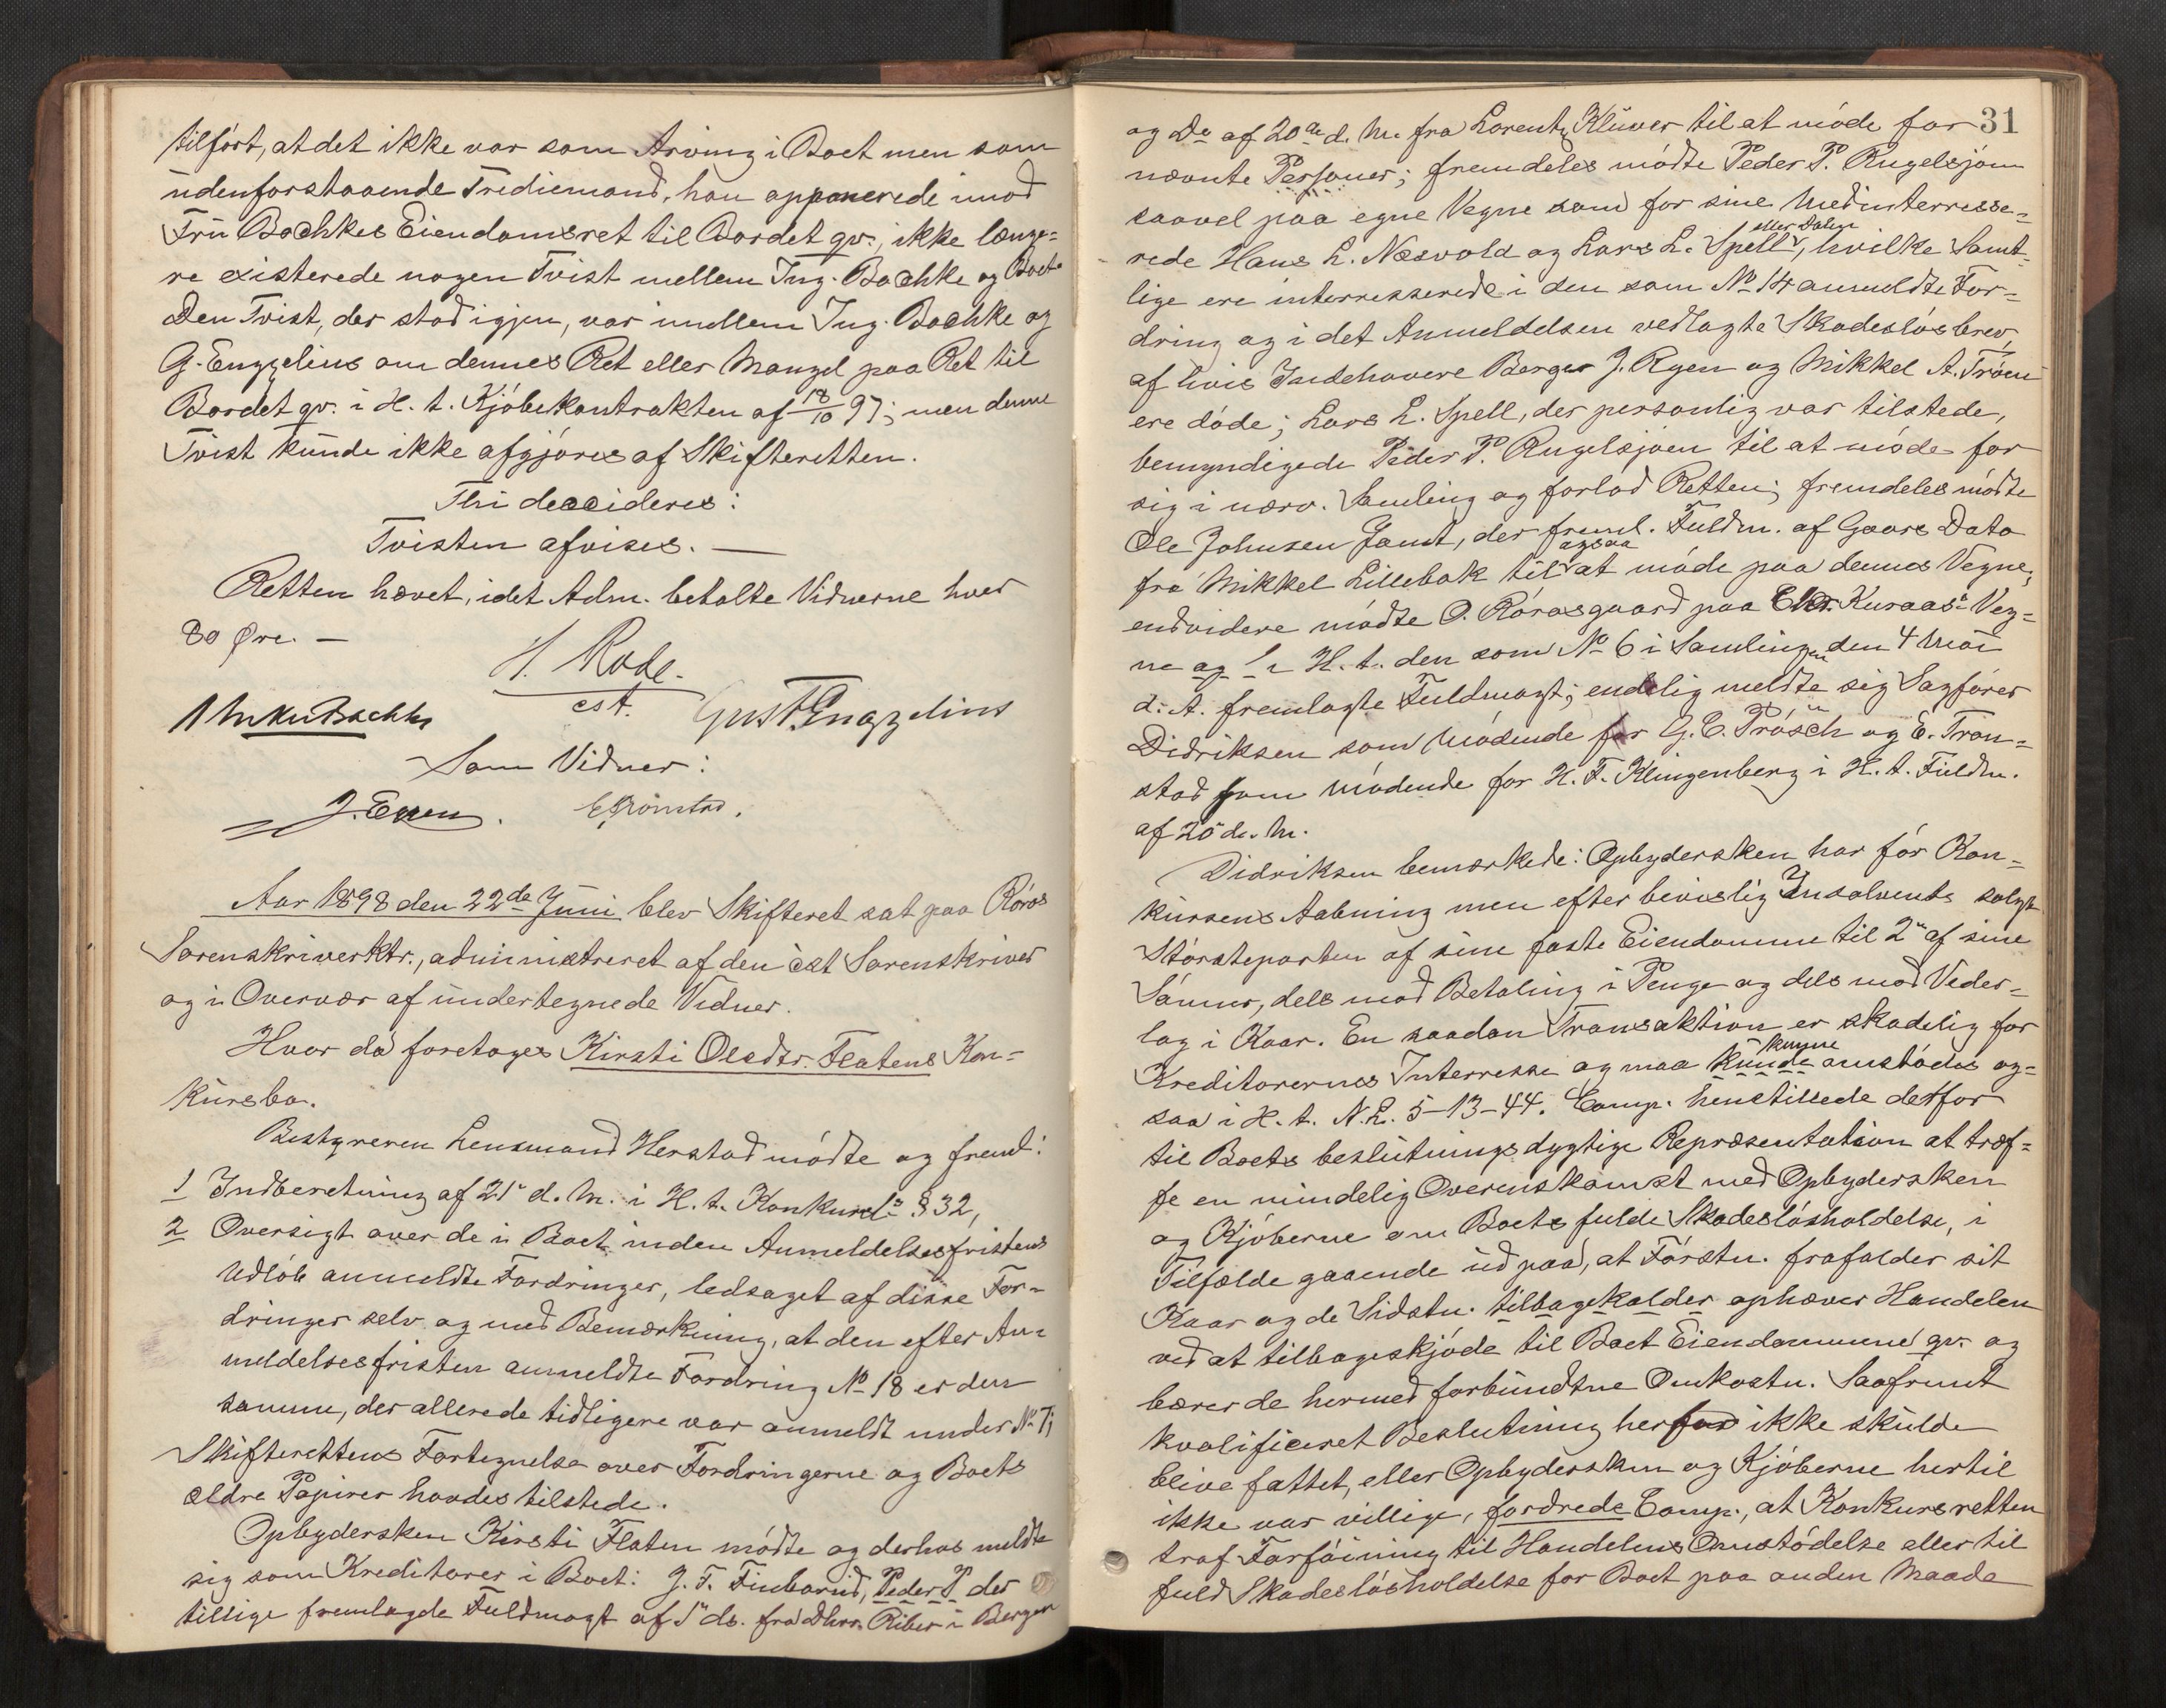 tilført, at det ikke var som Arving i Boet men som
udenforstaaende Trediemand, han opponerede imod
Fru Bachkes Eiendomsret til Bordet qv., ikke længe-
re existerede nogen Tvist mellem Ing. Bachke og Boet.
Den Tvist, der stod igjen, var mellem Ing. Bachke og
G. Engzelius om dennes Ret eller Mangel paa Ret til
Bordet qv. i H. t. Kjøbekontrakten af 18/10 97; men denne
Tvist kunde ikke afgjøres af Skifteretten.
Thi decideres:
Tvisten afvises. —
Retten hævet, idet Adm. betalte Vidnerne hver
80 Øre. —
H. Rode.
cst.
Gust. Engzelius
Som Vidner:
J. Eggen.
Aar 1898 den 22de Juni blev Skifteret sat paa Røros
Sorenskriverktr., administreret af den cst Sorenskriver
og i Overvær af undertegnede Vidner.
Hvor da foretoges Kirsti Olsdtr. Flatens Kon-
kursbo.
Bestyreren Lensmand Herstad mødte og freml:
1 Indberetning af 21' d. M. i H. t. Konkursl: § 32,
2 Oversigt over de i Boet inden Anmeldelsesfristens
Udløb anmeldte Fordringer, ledsaget af disse For-
dringer selv og med Bemærkning, at den efter An-
meldelsesfristen anmeldte Fordring No 18 er den
samme, der allerede tidligere var anmeldt under No 7;
Skifterettens Fortegnelse over Fordringerne og Boets
ældre Papirer havdes tilstede.
Opbydersken Kirsti Flaten mødte og derhos meldte
sig som Kreditorer i Boet: J. F. Finborud, Peder P der
tillige fremlagde Fuldmagt af 1" ds. fra Dhrr. Riber i Bergen
31
og Do af 20de d. M. fra Lorentz Klüwer til at møde for
nævnte Personer; fremdeles mødte Peder P. Rugelsjøen
saavel paa egne Vegne som for sine Medinterresse-
eller Dalen
rede Hans L. Næsvold og Lars L. Spell, hvilke Samt-
lige ere interresserede i den som No 14 anmeldte For-
dring og i det Anmeldelsen vedlagte Skadesløsbrev,
af hvis Indehavere Berger J. Ryen og Mikkel A. Trøen
ere døde; Lars L. Spell, der personlig var tilstede,
bemyndigede Peder P. Rugelsjøen til at møde for
sig i nærv. Samling og forlod Retten; fremdeles mødte
Ole Johnsen Jamt, der freml. Fuldm. af Gaars Dato
ogsaa
fra Mikkel Lillebak til at møde paa dennes Vegne;
endvidere mødte O. Rørosgaard paa Chr. Kuraas' Veg-
ne og i H. t. den som No 6 i Samlingen den 4 Mai
d. A. fremlagte Fuldmagt; endelig meldte sig Sagfører
Didriksen som Mødende for G. C. Prösch og E. Trøn-
stad som Mødende for H. F. Klingenberg i H. t. Fuldm.
af 20 d. M.
Didriksen bemærkede: Opbydersken har før Kon-
kursens Aabning men efter bevislig Insolvents solgt
Størsteparten af sine faste Eiendomme til 2" af sine
Sønner, dels mod Betaling i Penge og dels mod Veder-
lag i Kaar. En saadan Transaktion er skadelig for
kunne
Kreditorernes Interresse og maa kunde omstødes og-
saa i H. t. N. L. 5-13-44. Comp. henstillede derfor
til Boets beslutningsdygtige Repræsentation at træf-
fe en mindelig Overenskomst med Opbydersken
og Kjøberne om Boets fulde Skadesløsholdelse, i
Tilfælde gaaende ud paa, at Førstn. frafalder sit
Kaar og de Sidstn. tilbagekalder ophæver Handelen
ved at tilbageskjøde til Boet Eiendommene qv. og
bærer de hermed forbundtne Omkostn. Saafremt
kvalificeret Beslutning herfor ikke skulde
blive fattet, eller Opbydersken og Kjøberne hertil
ikke var villige, fordrede Comp., at Konkursretten
traf Forføining til Handelens Omstødelse eller til
fuld Skadesløsholdelse for Boet paa anden Maade